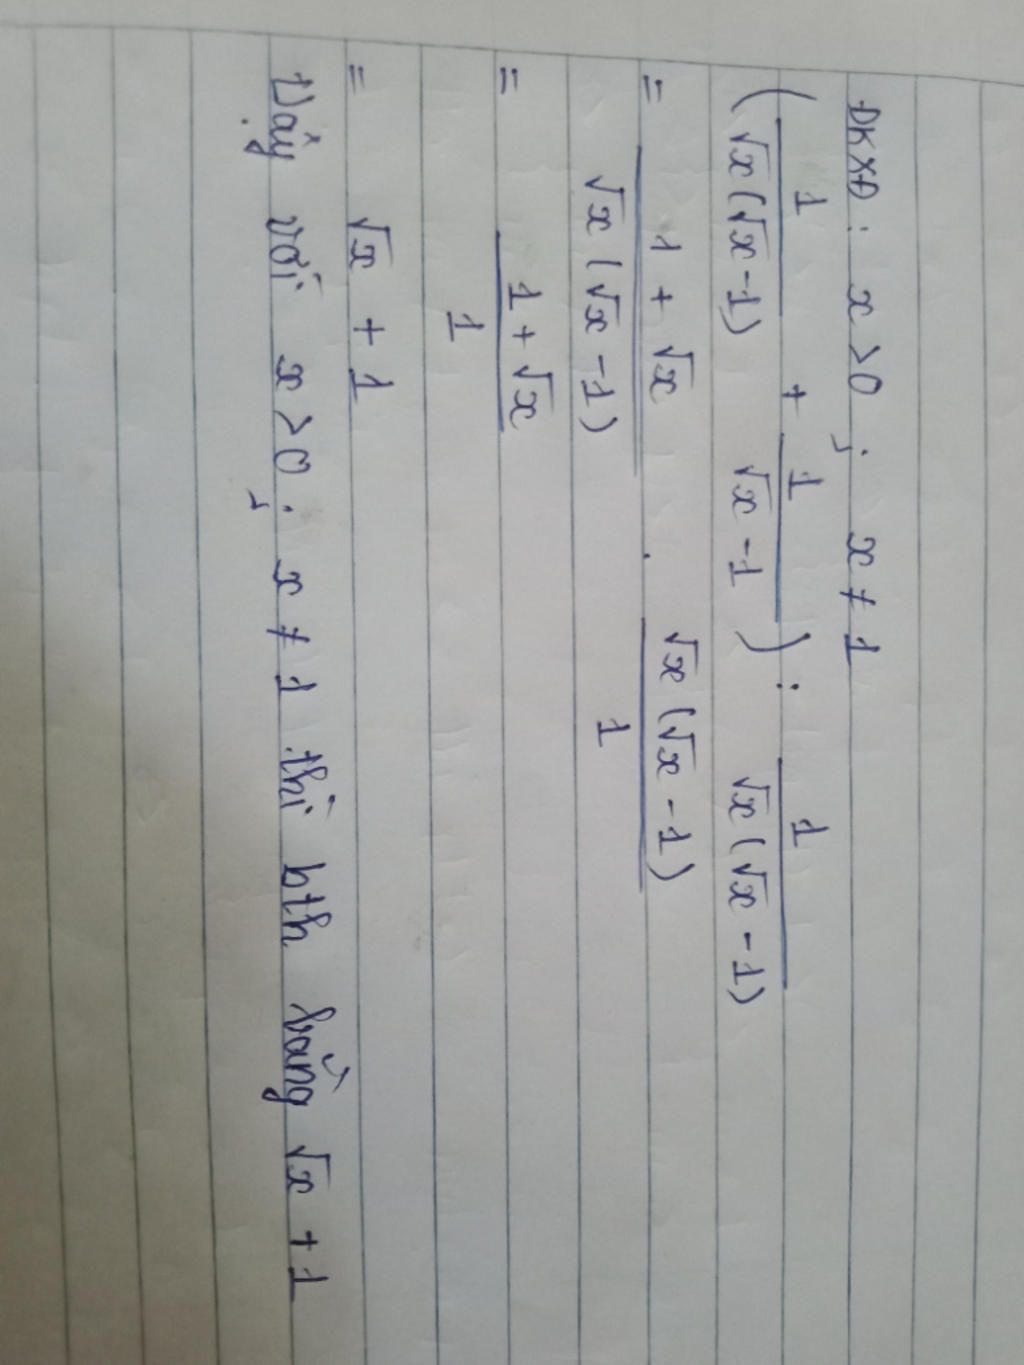 ĐKXĐ : x > 0 ; x ≠ 1
( 1/(√x(√x - 1)) + 1/(√x - 1) ) : 1/(√x(√x - 1))
= (1 + √x)/(√x(√x - 1)) . (√x(√x - 1))/1
= (1 + √x)/1
= √x + 1
Vậy với x > 0 ; x ≠ 1 thì bth bằng √x + 1